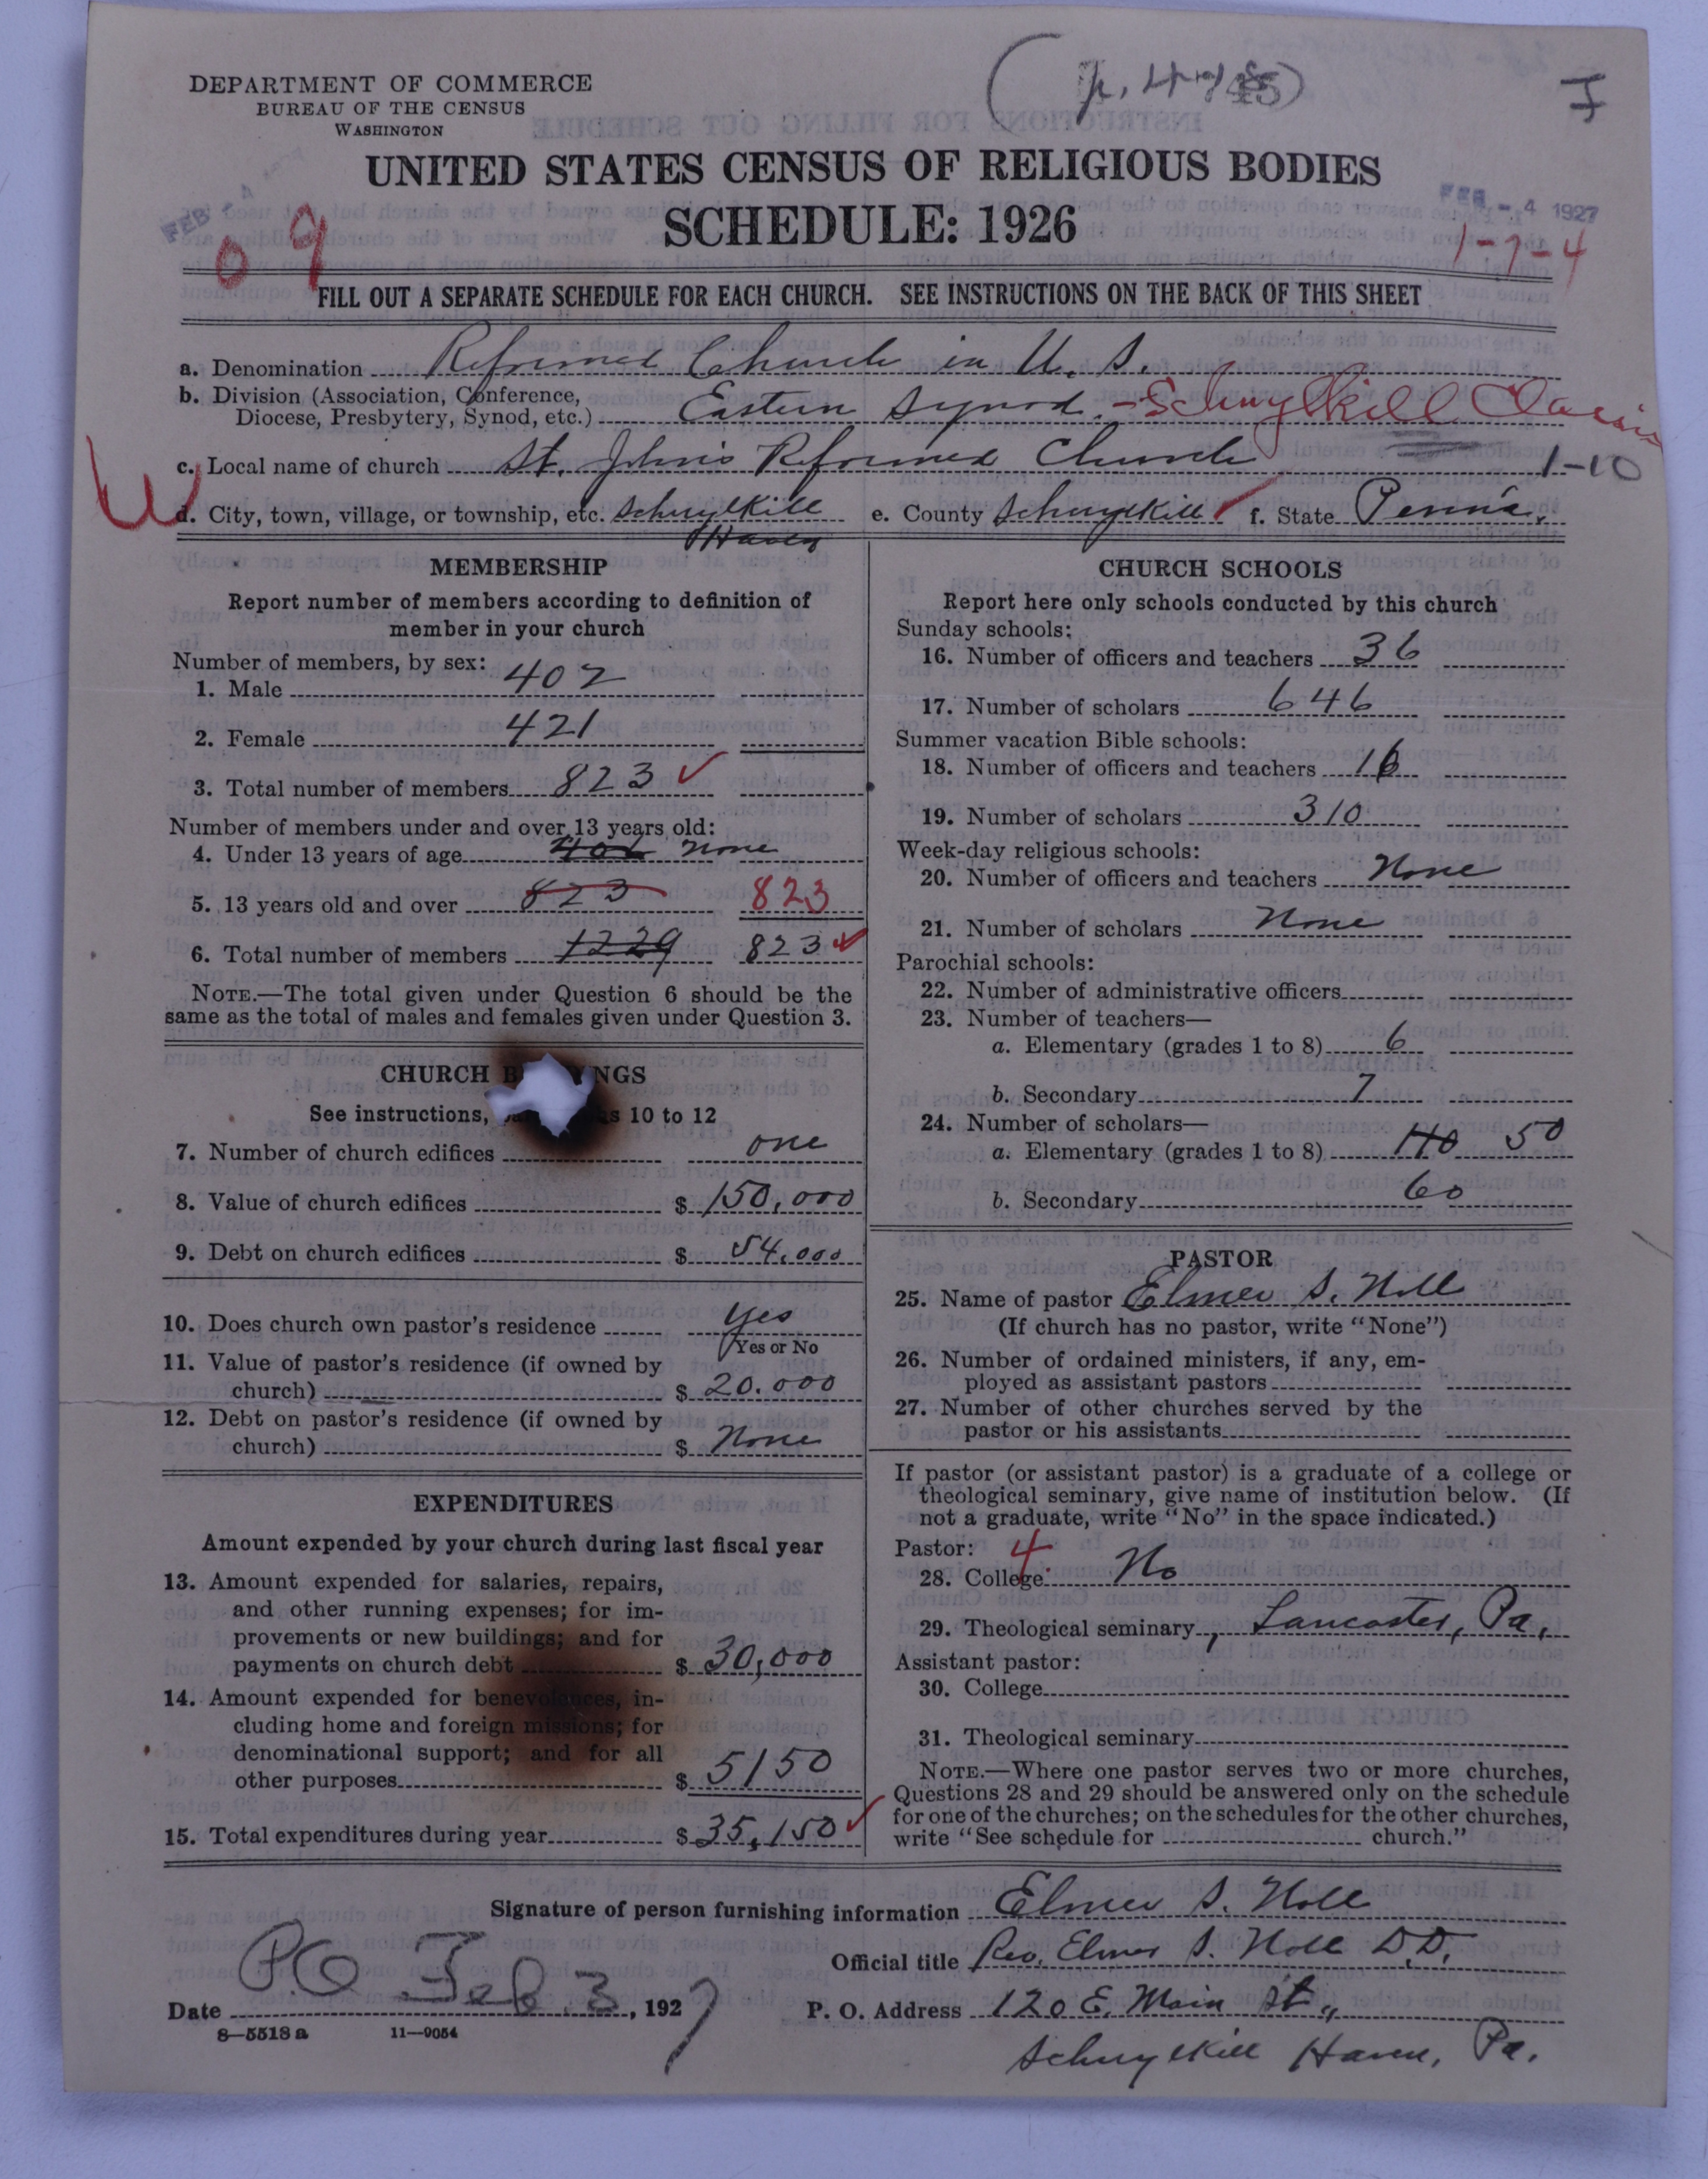 DEPARTMENT OF COMMERCE
BUREAU OF THE CENSUS
WASHINGTON
UNITED STATES CENSUS OF RELIGIOUS BODIES
SCHEDULE: 1926
FEB - 4 1927
09
1-7-4
FILL OUT A SEPARATE SCHEDULE FOR EACH CHURCH. SEE INSTRUCTIONS ON THE BACK OF THIS SHEET
a. Denomination Reformed Church in U. S.
b. Division (Association, Conference,
Diocese, Presbytery, Synod, etc.) Eastern Synod. - Schuylkill Classis
c. Local name of church St. John's Reformed Church 1-10
d. City, town, village, or township, etc. Schuylkill Haven e. County Schuylkill f. State Penna.
MEMBERSHIP
Report number of members according to definition of
member in your church
Number of members, by sex:
1. Male 402
2. Female 421
3. Total number of members 823
Number of members under and over 13 years old:
4. Under 13 years of age 406 None
5. 13 years old and over 823 823
6. Total number of members 1229 823
NOTE.—The total given under Question 6 should be the
same as the total of males and females given under Question 3.
CHURCH B NGS
See instructions, s 10 to 12
7. Number of church edifices one
8. Value of church edifices $ 150,000
9. Debt on church edifices $ 54,000
10. Does church own pastor's residence Yes
Yes or No
11. Value of pastor's residence (if owned by
church) $ 20.000
12. Debt on pastor's residence (if owned by
church) $ None
EXPENDITURES
Amount expended by your church during last fiscal year
13. Amount expended for salaries, repairs,
and other running expenses; for im-
provements or new buildings; and for
payments on church debt $ 30,000
14. Amount expended for benevolences, in-
cluding home and foreign missions; for
denominational support; and for all
other purposes $ 5150
15. Total expenditures during year $ 35,150
CHURCH SCHOOLS
Report here only schools conducted by this church
Sunday schools:
16. Number of officers and teachers 36
17. Number of scholars 646
Summer vacation Bible schools:
18. Number of officers and teachers 16
19. Number of scholars 310
Week-day religious schools:
20. Number of officers and teachers None
21. Number of scholars None
Parochial schools:
22. Number of administrative officers
23. Number of teachers—
a. Elementary (grades 1 to 8) 6
b. Secondary 7
24. Number of scholars—
a. Elementary (grades 1 to 8) 110 50
b. Secondary 60
PASTOR
25. Name of pastor Elmer S. Noll
(If church has no pastor, write "None")
26. Number of ordained ministers, if any, em-
ployed as assistant pastors
27. Number of other churches served by the
pastor or his assistants
If pastor (or assistant pastor) is a graduate of a college or
theological seminary, give name of institution below. (If
not a graduate, write "No" in the space indicated.)
Pastor: 4
28. College No
29. Theological seminary, Lancaster, Pa.
Assistant pastor:
30. College
31. Theological seminary
NOTE.—Where one pastor serves two or more churches,
Questions 28 and 29 should be answered only on the schedule
for one of the churches; on the schedules for the other churches,
write "See schedule for church."
Signature of person furnishing information Elmer S. Noll
Official title Rev. Elmer S. Noll D.D.
Date P.O. Feb 3, 1927
P. O. Address 120 E. Main St.,
Schuylkill Haven, Pa.
8—5518 a 11—9054